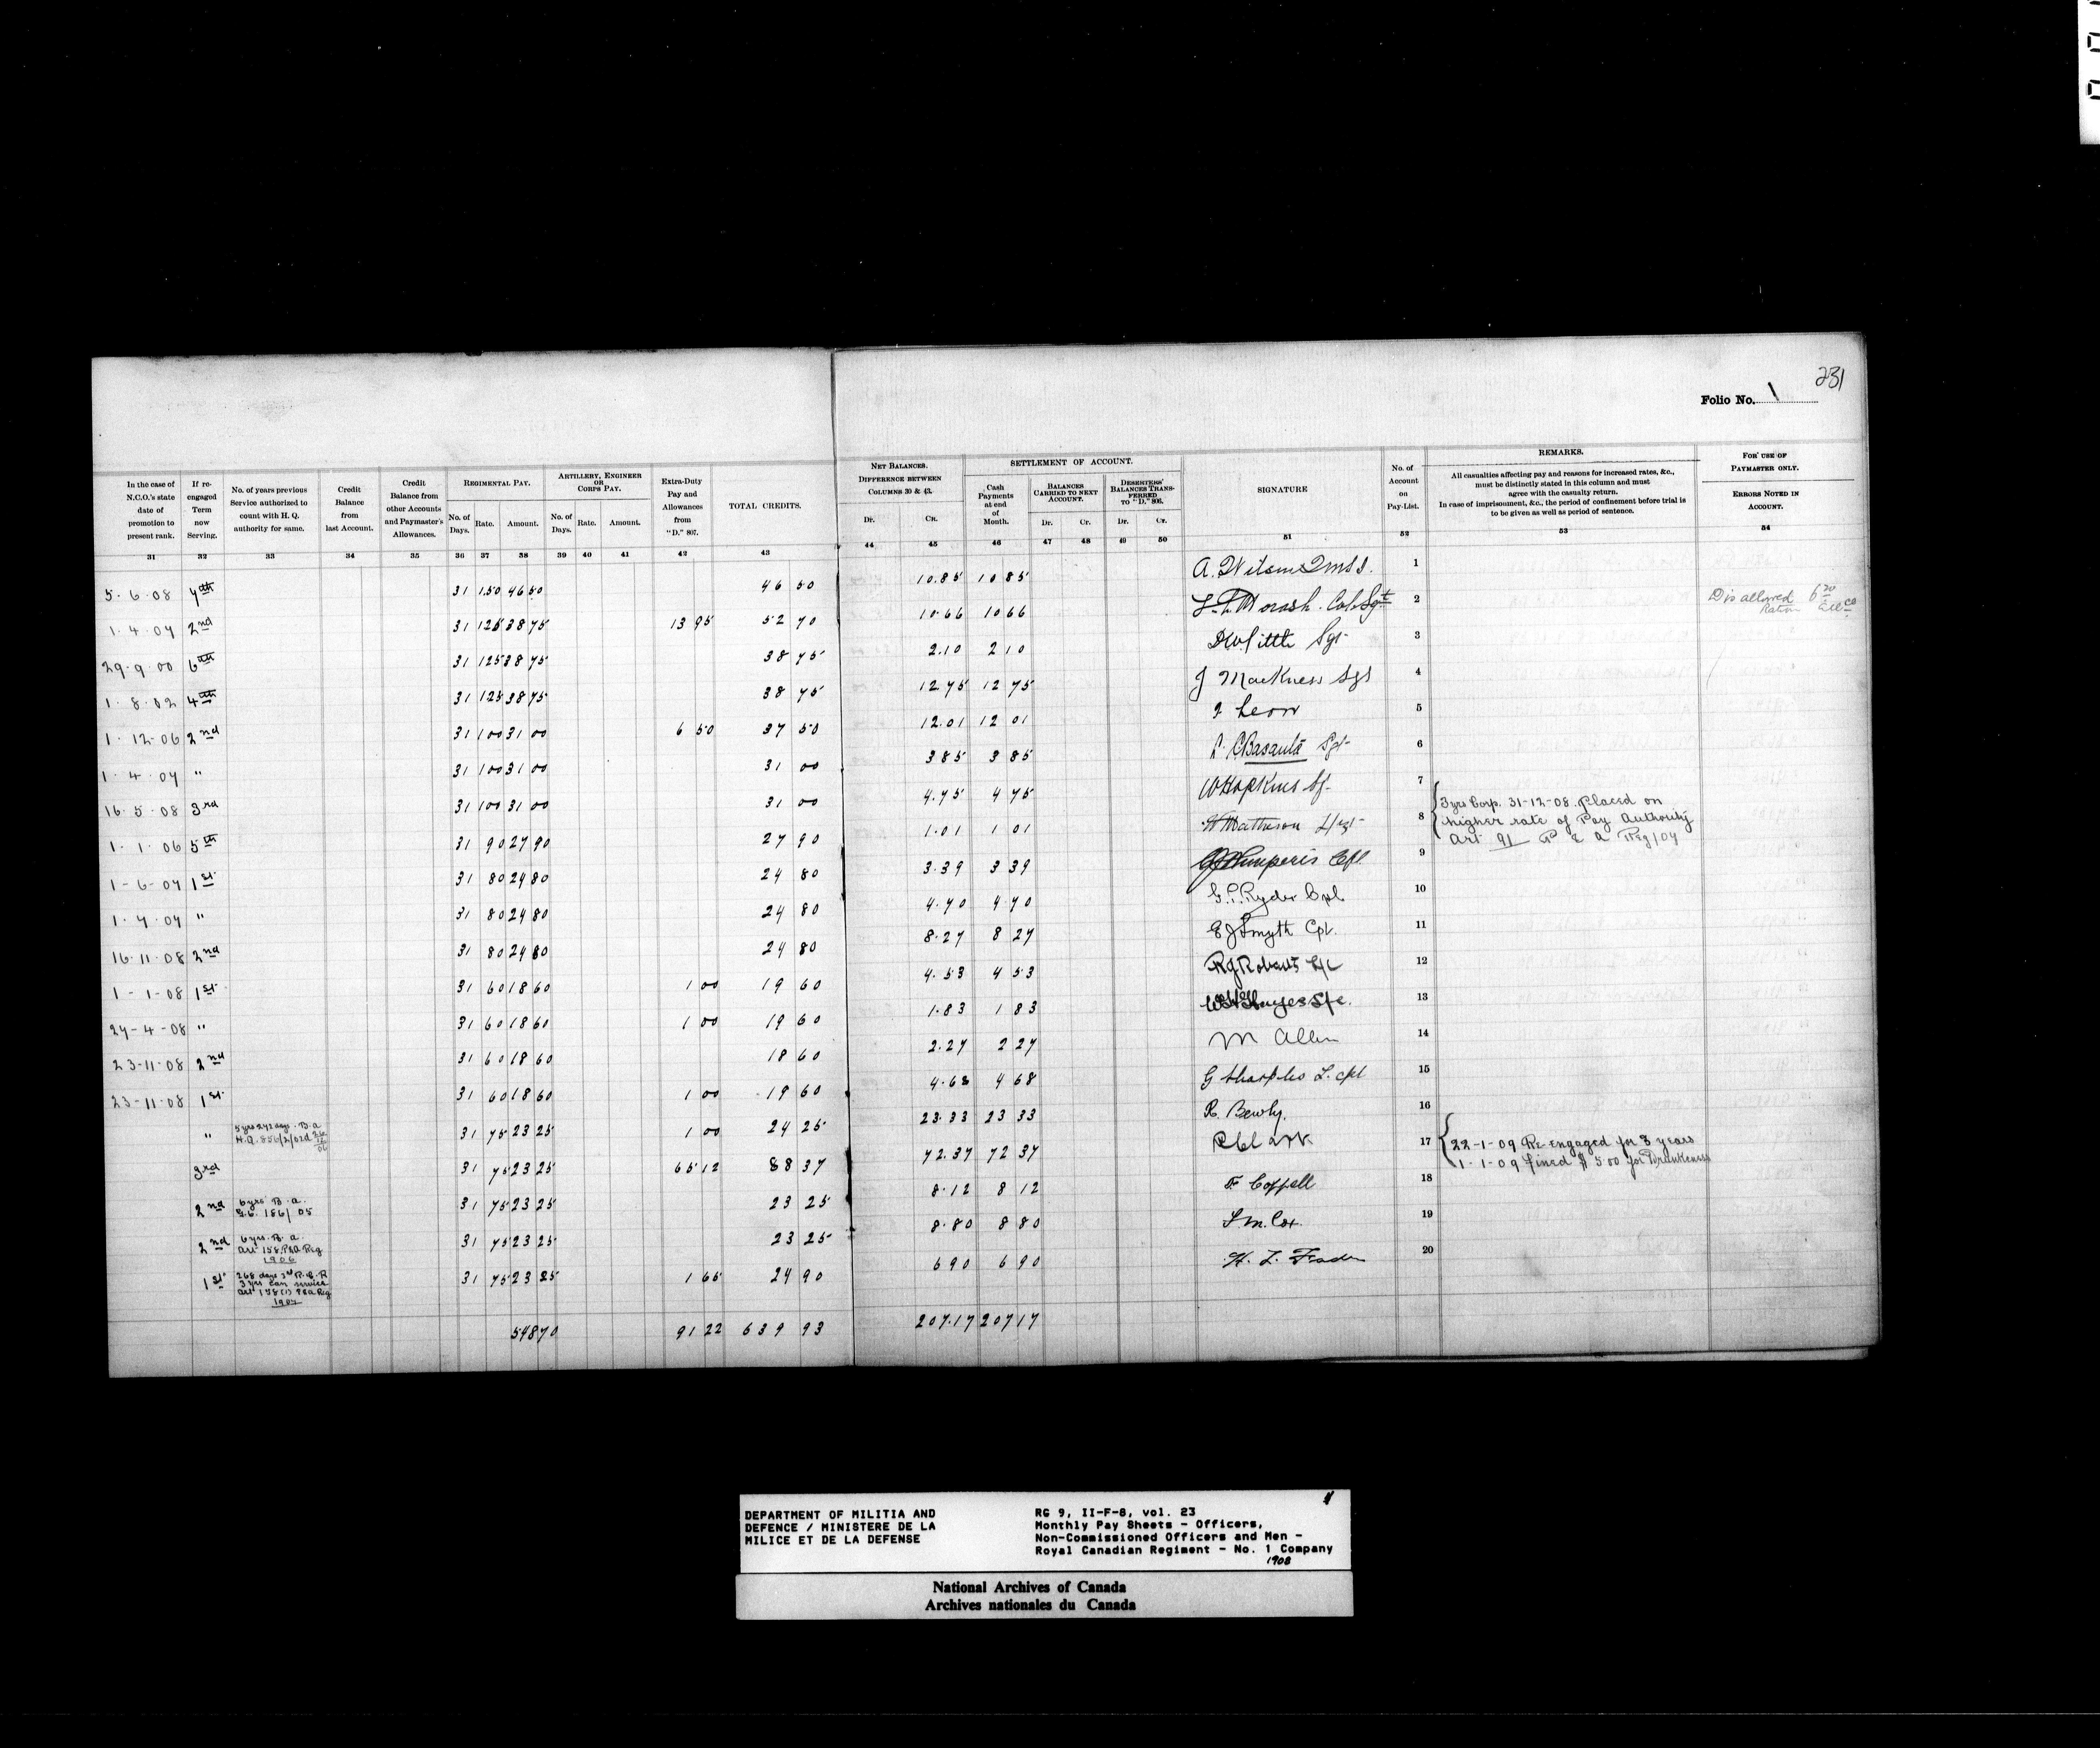 231
Folio No. 1
In the case of N.C.O.'s state date of promotion to present rank.
If re-engaged Term now Serving.
No. of years previous Service authorized to count with H. Q. authority for same.
Credit Balance from last Account.
Credit Balance from other Accounts and Paymaster's Allowances.
REGIMENTAL PAY.
No. of Days. Rate. Amount.
ARTILLERY, ENGINEER OR CORPS PAY.
No. of Days. Rate. Amount.
Extra-Duty Pay and Allowances from "D." 807.
TOTAL CREDITS.
NET BALANCES. DIFFERENCE BETWEEN COLUMNS 30 & 43.
Dr. Cr.
SETTLEMENT OF ACCOUNT.
Cash Payments at end of Month.
BALANCES CARRIED TO NEXT ACCOUNT.
Dr. Cr.
DESERTERS' BALANCES TRANSFERRED TO "D." 805.
Dr. Cr.
SIGNATURE
No. of Account on Pay-List.
REMARKS.
All casualties affecting pay and reasons for increased rates, &c.,
must be distinctly stated in this column and must
agree with the casualty return.
In case of imprisonment, &c., the period of confinement before trial is
to be given as well as period of sentence.
FOR USE OF PAYMASTER ONLY.
ERRORS NOTED IN ACCOUNT.
31 32 33 34 35 36 37 38 39 40 41 42 43 44 45 46 47 48 49 50 51 52 53 54
5-6-08 7th 31 1.50 46 50 46 50 10.85 10 85 1
1.4.07 2nd 31 125 38 75 13 95 52 70 10.66 10 66 Col Sgt 2 Disallowed 6 20 Ration
29-9-00 6th 31 125 38 75 38 75 2.10 2 10 Sgt 3
1.8.02 4th 31 125 38 75 38 75 12.75 12 75 J Mackness Sgt 4
1.12.06 2nd 31 100 31 00 6 50 37 50 12.01 12 01 5
1.4.07 " 31 100 31 00 31 00 3 85 3 85 Sgt 6
16.5.08 3rd 31 100 31 00 31 00 4.75 4 75 W Hopkins 7
1.1.06 5th 31 90 27 90 27 90 1.01 1 01 8 3 yrs Corp. 31-12-08. Placed on
higher rate of Pay Authority
Art 91 P & A Reg/07
1-6-07 1st 31 80 24 80 24 80 3.39 3 39 9
1.7.07 " 31 80 24 80 24 80 4.70 4 70 Ryder Cpl 10
16.11.08 2nd 31 80 24 80 24 80 8.27 8 27 E J Smyth Cpl. 11
1-1-08 1st 31 60 18 60 1 00 19 60 4.53 4 53 R J Roberts 12
27-4-08 " 31 60 18 60 1 00 19 60 1.83 1 83 13
23-11-08 2nd 31 60 18 60 18 60 2.27 2 27 M Allen 14
23-11-08 1st 31 60 18 60 1 00 19 60 4.68 4 68 G Sharples L. Cpl 15
" 31 75 23 25 1 00 24 25 23.33 23 33 16
3rd 31 75 23 25 65 12 88 37 72.37 72 37 17 22-1-09 Re-engaged for 3 years
1-1-09 fined $ 5.00 for Drunkeness
2nd 6 yrs B.A. G.O. 186/05 31 75 23 25 23 25 8.12 8 12 F Coppell 18
2nd 6 yrs. B.A. Art 158 P&A Reg 1906 31 75 23 25 23 25 8.80 8 80 Cox 19
1st 268 days 3rd R.C.R 3 yrs Can service P&A Reg 1907 31 75 23 25 1 65 24 90 6 90 6 90 20
548 70 91 22 639 93 207.17 207 17
DEPARTMENT OF MILITIA AND
DEFENCE / MINISTERE DE LA
MILICE ET DE LA DEFENSE
RG 9, II-F-8, vol. 23
Monthly Pay Sheets - Officers,
Non-Commissioned Officers and Men -
Royal Canadian Regiment - No. 1 Company
1908
National Archives of Canada
Archives nationales du Canada